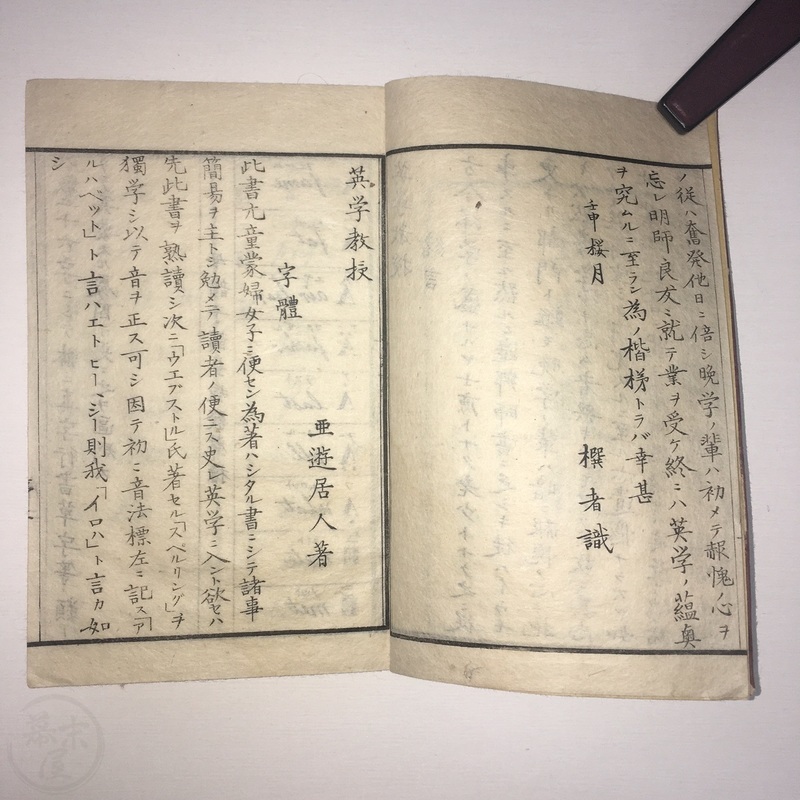 ノ従ハ奮発他日ニ倍シ晩学ノ輩ハ初メテ赧愧ノ心ヲ
忘レ明師良友ニ就テ業ヲ受ケ終ニハ英学ノ蘊奥
ヲ究ムルニ至ラン為ノ楷梯トラバ幸甚
壬申桜月
撰者識
英学教授
亜遊居人著
字體
此書尤童蒙婦女子ニ便セン為著ハシタル書ニシテ諸事
簡易ヲ主トシ勉メテ讀者ノ便ニス史レ英学ニ入ント欲セハ
先此書ヲ熟讀シ次ニ「ウエブストル」氏著セル「スペルリング」ヲ
獨学シ以テ音ヲ正ス可シ因テ初ニ音法標左ニ記ス「ア
ルハベット」ト言ハエトヒーシー則我「イロハ」ト言カ如
シ